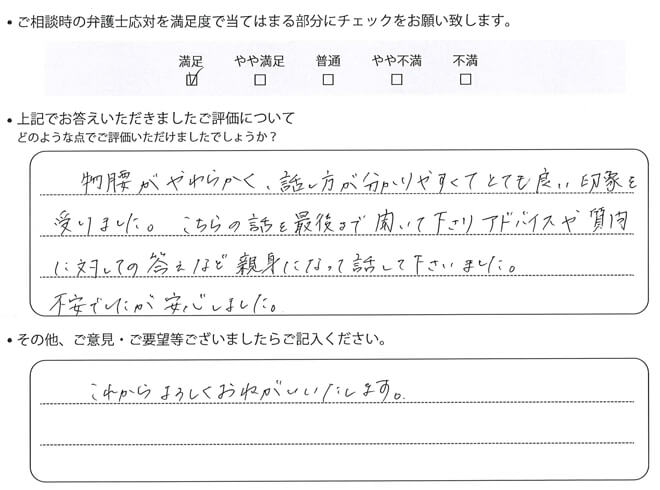 • ご相談時の弁護士応対を満足度で当てはまる部分にチェックをお願い致します。
満足 やや満足 普通 やや不満 不満
☑ □ □ □ □
• 上記でお答えいただきましたご評価について
どのような点でご評価いただけましたでしょうか？
物腰がやわらかく、話し方が分かりやすくてとても良い印象を
受りました。こちらの話を最後まで聞いて下さりアドバイスや質問
に対しての答えなど親身になって話して下さいました。
不安でしたが安心しました。
• その他、ご意見・ご要望等ございましたらご記入ください。
これからよろしくおねがいいたします。